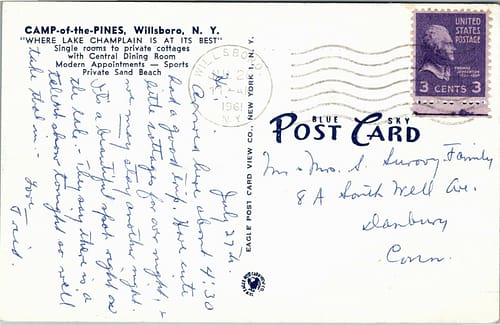 CAMP-of-the-PINES, Willsboro, N. Y.
"WHERE LAKE CHAMPLAIN IS AT ITS BEST"
Single rooms to private cottages
with Central Dining Room
Modern Appointments — Sports
Private Sand Beach
July 27th.
Hi -
Arrived here about 4:30
Had a good trip. Have cute
little cottages for over night, &
we may stay another night.
It's a beautiful spot right on
the lake. - They say there is a
talent show tonight so we'll
take that in - Love
WILLSBORO
1961
N.Y.
EAGLE POST CARD VIEW CO., NEW YORK 1, N. Y.
BLUE SKY
POST CARD
UNITED
STATES
POSTAGE
THOMAS
JEFFERSON
3 CENTS 3
Mr & Mrs. S. Survoy Family
8 A South Well Ave.
Danbury
Conn.